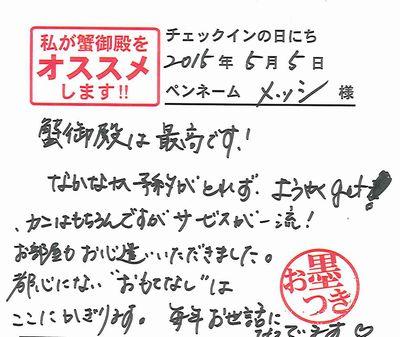 私が蟹御殿を
オススメ
します!!
チェックインの日にち
2015年5月5日
ペンネーム メッシ 様
蟹御殿は最高です!
なかなか予約がとれず、ようやくget!
、カニはもちろんですがサービスが一流!
お部屋もお心遣いいただきました。
都心にない“おもてなし”は
ここにかぎります。毎年お世話に
なってます♡
お墨つき